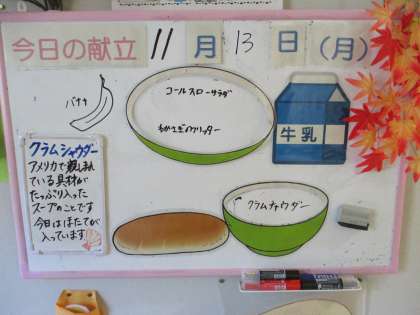 今日の献立 11月13日(月)
バナナ
コールスローサラダ
わかさぎのフリッター
牛乳
クラムシャウダー
アメリカで親しまれ
ている具材が
たっぷり入った
スープのことです
今日はほたてが
入っています
クラムチャウダー